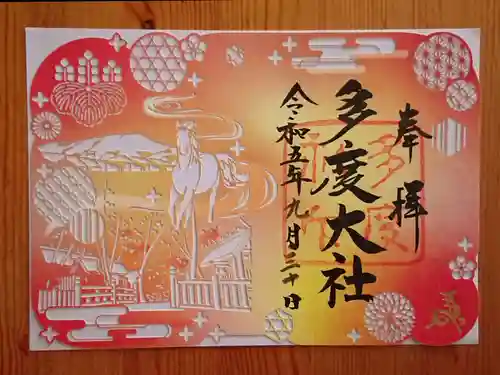 奉拝
多度大社
令和五年九月三十日
多度大社